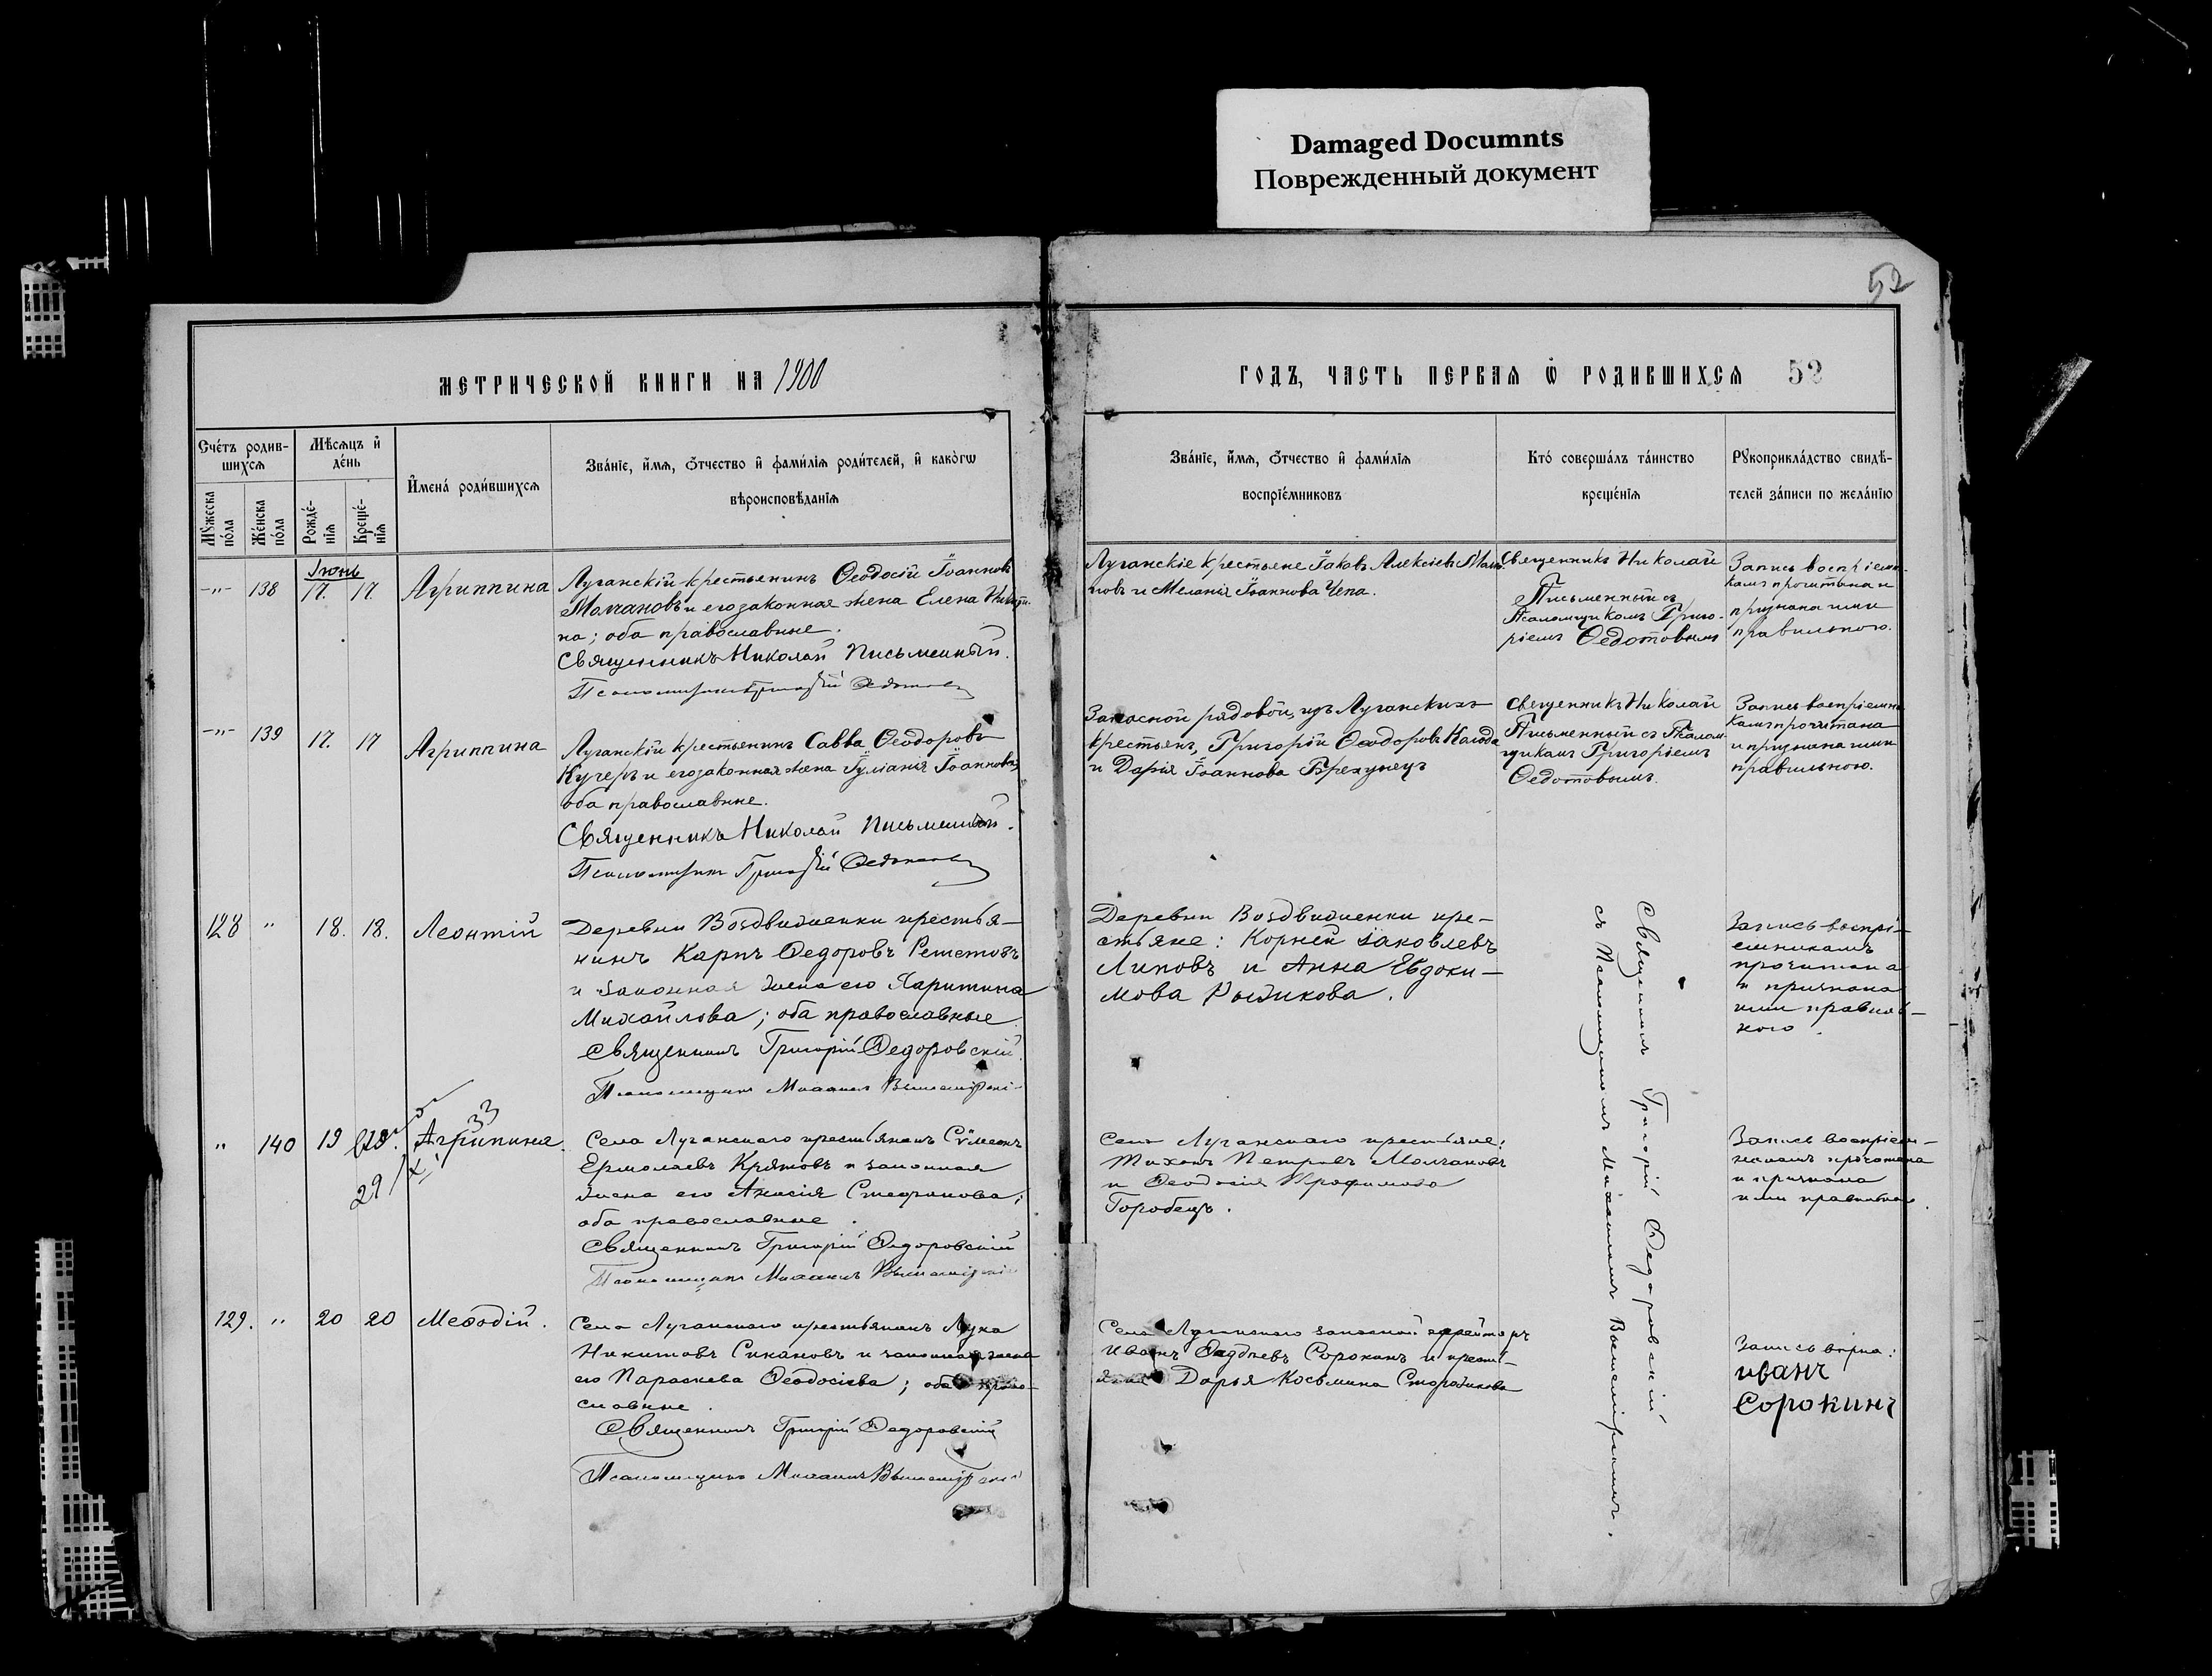 Damaged Documnts
Поврежденный документ
52
МЕТРИЧЕСКОЙ КНИГИ НА 1900
ГОДЪ, ЧАСТЬ ПЕРВАЯ Ѡ РОДИВШИХСЯ 52
Счéтъ родив-
шихся
Мѣсяцъ и҆
дéнь
Мꙋ́жеска
пóла
Жéнска
пóла
Рождé-
нїѧ
Крещé-
нїѧ
И҆менá роди́вшихсѧ
Звáнїе, и҆́мѧ, ѻ҆́тчество и҆ фами́лїѧ роди́телей, и҆ какóгѡ
вѣроисповѣ́данїѧ
Звáнїе, и҆́мѧ, ѻ҆́тчество и҆ фами́лїѧ
воспрїéмниковъ
Ктó совершáлъ тáинство
крещéнїѧ
Рꙋкоприклáдство свидѣ́-
телей зáписи по желáнїю
Іюнь
-"- 138 17. 17. Агриппина
Луганскій крестьянинъ Ѳеодосій Іоанновъ
Молчановъ и его законная жена Елена
на; оба православные.
Священникъ Николай Письменный.
Луганскіе крестьяне Іаковъ Алексіевъ
новъ и Меланія Іоаннова Чепа.
Священникъ Николай
Письменный съ
Псаломщикомъ Григо-
ріемъ Ѳедотовымъ
Запись воспріемни-
камъ прочитана и
признана ими
правильною.
-"- 139 17. 17 Агриппина
Луганскій крестьянинъ Савва Ѳеодоровъ
Кучеръ и его законная жена Іуліанія Іоаннова
оба православные.
Священникъ Николай Письменный.
Псаломщикъ Григорій Ѳедотовъ
Запасной рядовой, изъ Луганскихъ
крестьянъ, Григорій Ѳеодоровъ
и Дарія Іоаннова Брехунецъ
Священникъ Николай
Письменный съ Псалом-
щикомъ Григоріемъ
Ѳедотовымъ.
Запись воспріемни
камъ прочитана
и признана ими
правильною.
128 " 18. 18. Леонтій
Деревни Воздвиженки крестья-
нинъ Карпъ Ѳедоровъ Решетовъ
и законная жена его Харитина
Михайлова; оба православные
Священникъ Григорій Ѳедоровскій.
Псаломщикъ Михаилъ
Деревни Воздвиженки кре-
стьяне: Корней Іаковлевъ
Липовъ и Анна Евдоки-
мова Рыжкова.
Запись воспрі-
емникамъ
прочитана
и признана
ими правиль-
ною.
" 140 19 Агрипина
33
29/XI
Села Луганскаго крестьянинъ Сѵмеонъ
Ермолаевъ Кратовъ и законная
жена его Анисія Стефанова;
оба православные.
Священникъ Григорій Ѳедоровскій
Псаломщикъ Михаилъ
Села Луганскаго крестьяне:
Тихонъ Петровъ Молчановъ
и Ѳеодосія Трофимова
Горобецъ.
Запись воспріем-
никамъ прочитана
и признана
ими правильною.
129. " 20 20 Меѳодій.
Села Луганскаго крестьянинъ Лука
Никитовъ Сикановъ и законная жена
его Параскева Ѳеодосіева; оба право-
славные.
Священникъ Григорій Ѳедоровскій
Псаломщикъ Михаилъ
Села Луганскаго запасной ефрейторъ
Иванъ Сорокинъ и кресть-
янка Дарья Косьмина Сторожкова
Запись вѣрна:
Иванъ
Сорокинъ
Священникъ Григорій Ѳедоровскій
съ Псаломщикомъ Михаиломъ